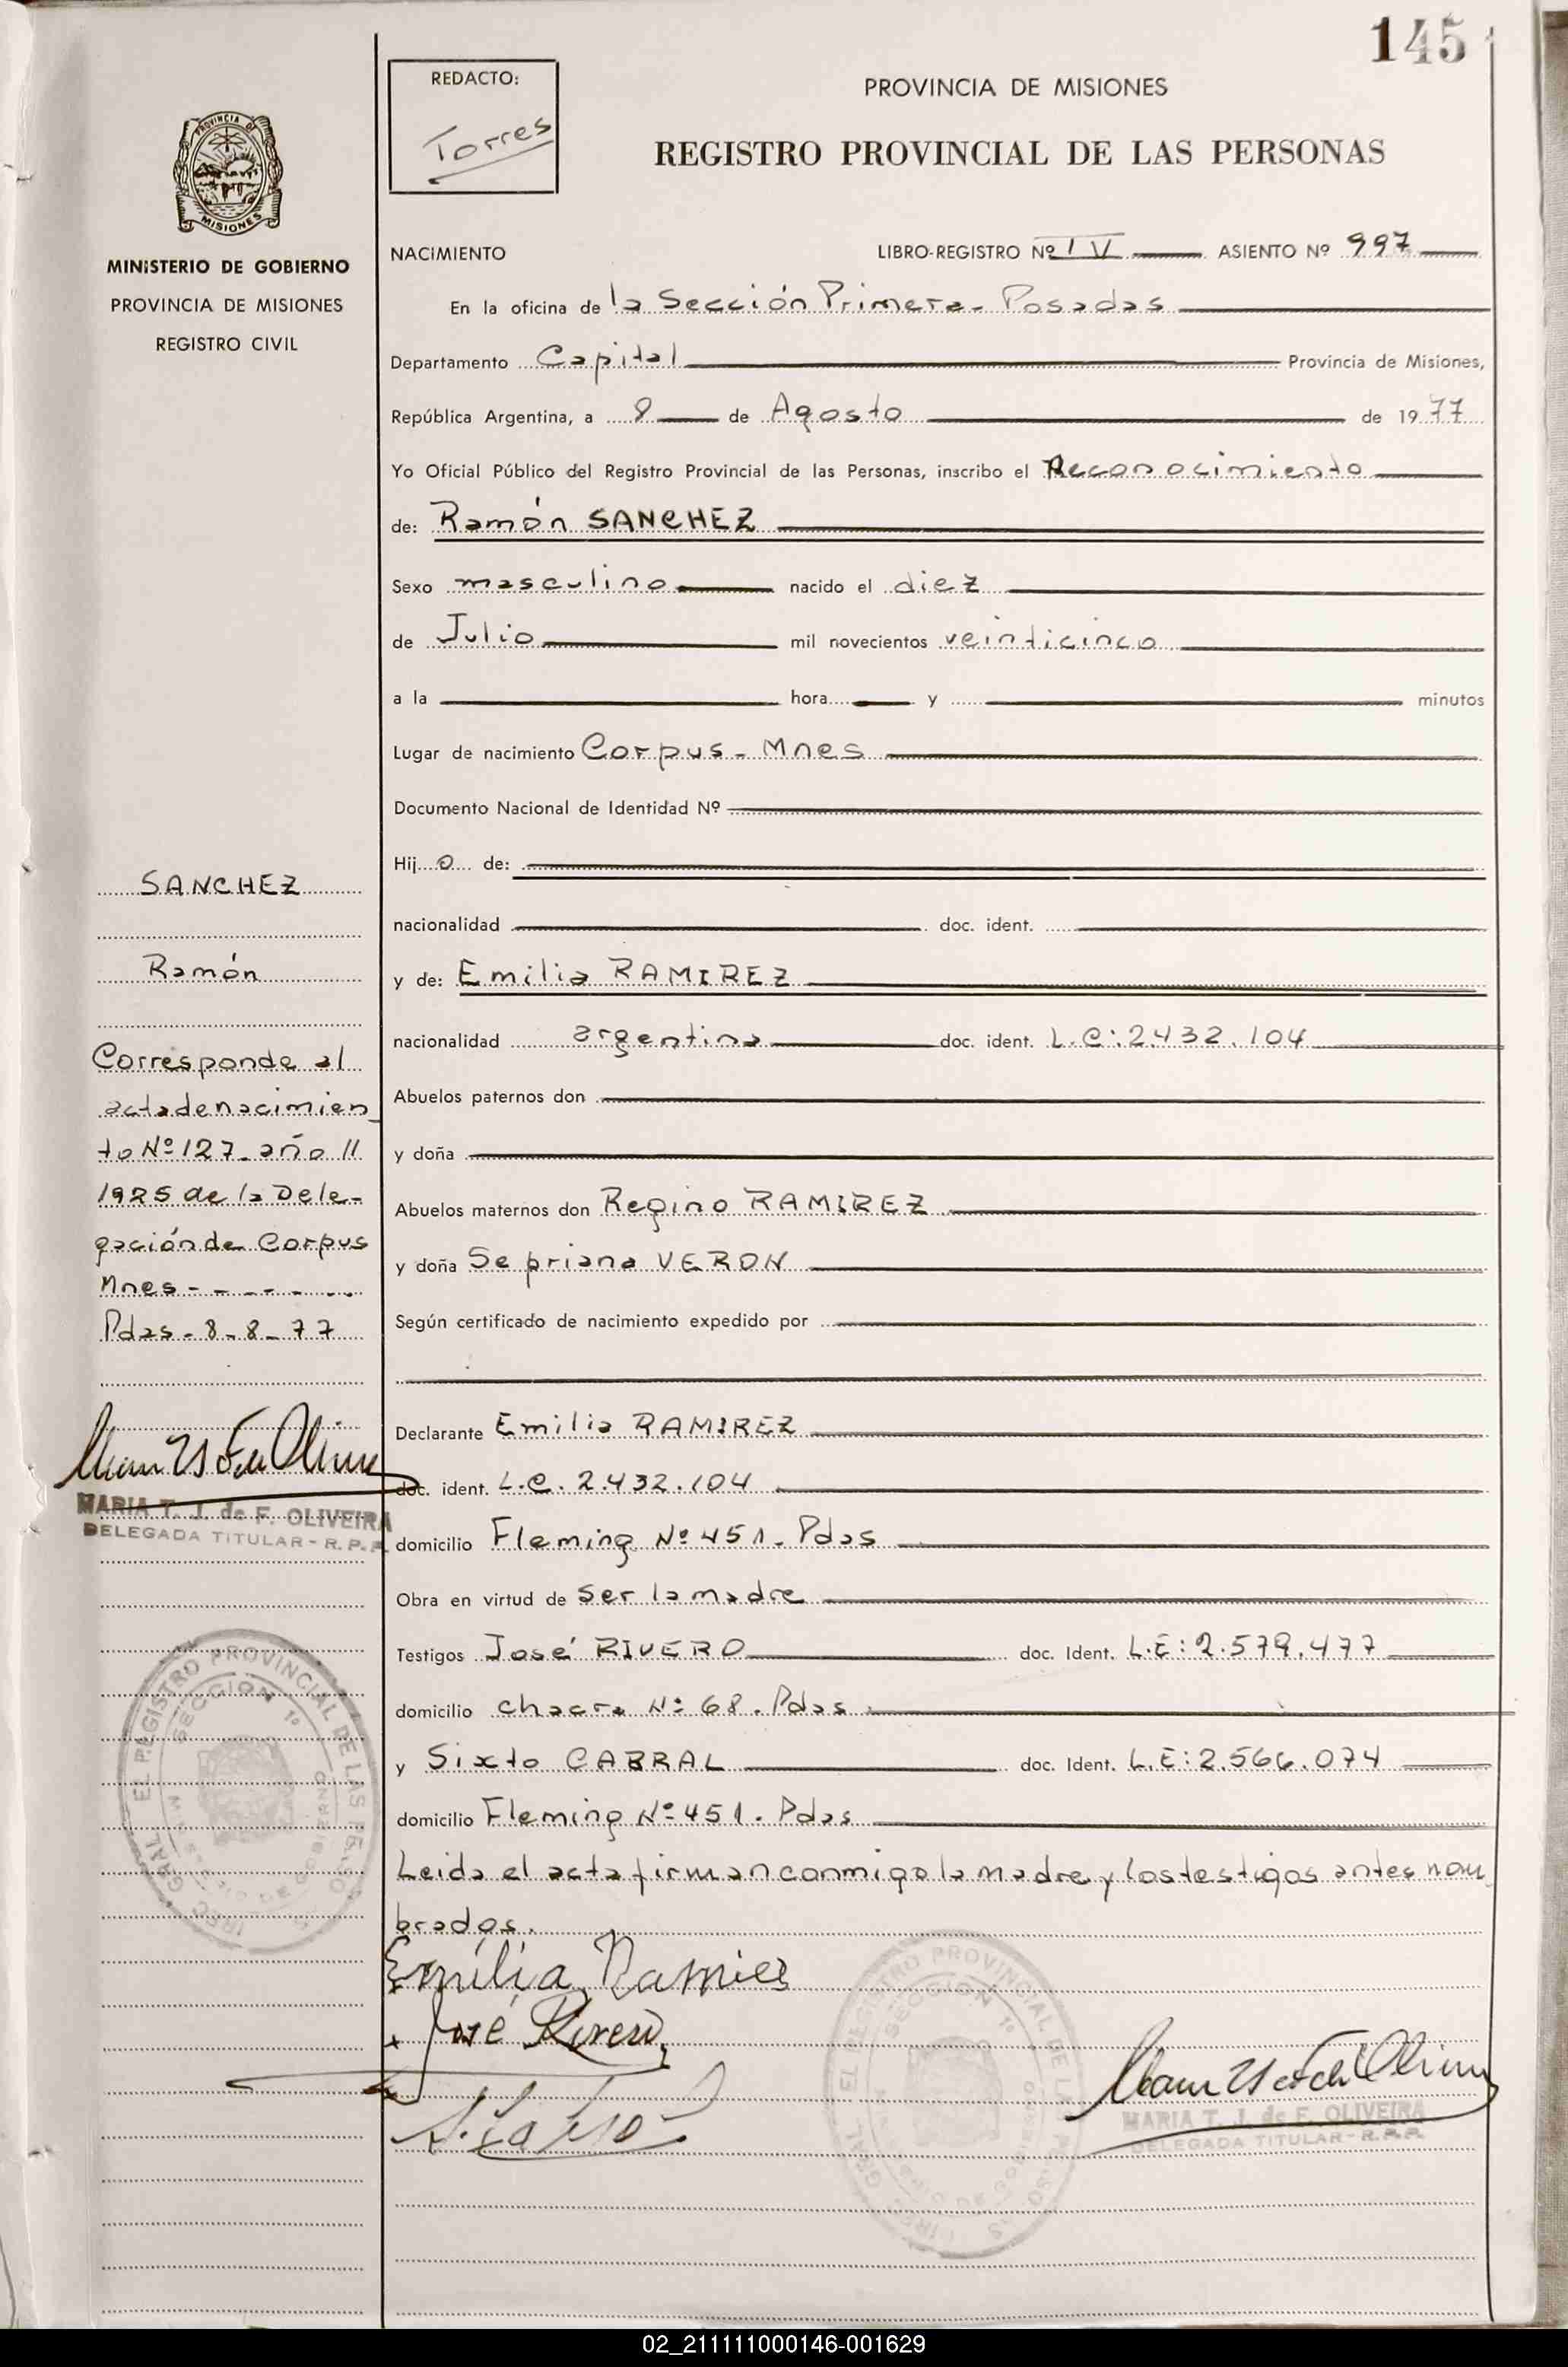 145
REDACTO:
Torres
PROVINCIA DE MISIONES
REGISTRO PROVINCIAL DE LAS PERSONAS
PROVINCIA DE
MISIONES
MINISTERIO DE GOBIERNO
PROVINCIA DE MISIONES
REGISTRO CIVIL
NACIMIENTO LIBRO-REGISTRO Nº IV ASIENTO Nº 997
En la oficina de la Sección Primera - Posadas
Departamento Capital Provincia de Misiones,
República Argentina, a 8 de Agosto de 1977
Yo Oficial Público del Registro Provincial de las Personas, inscribo el Reconocimiento
de: Ramón SANCHEZ
Sexo masculino nacido el diez
de Julio mil novecientos veinticinco
a la hora y minutos
Lugar de nacimiento Corpus - Mnes
Documento Nacional de Identidad Nº
Hijo de:
nacionalidad doc. ident.
y de: Emilia RAMIREZ
nacionalidad argentina doc. ident. L.C: 2.432.104
Abuelos paternos don
y doña
Abuelos maternos don Regino RAMIREZ
y doña Sepriana VERON
Según certificado de nacimiento expedido por
Declarante Emilia RAMIREZ
doc. ident. L.C. 2.432.104
domicilio Fleming Nº 451 - Pdas
Obra en virtud de ser la madre
Testigos José RIVERO doc. Ident. L.E: 2.579.477
domicilio chacra Nº 68. Pdas
y Sixto CABRAL doc. Ident. L.E: 2.566.074
domicilio Fleming Nº 451. Pdas
Leida el acta firman conmigo la madre y los testigos antes nom
brados.
Emilia Ramiez
José Rivero
SANCHEZ
Ramón
Corresponde al
acta de nacimien_
to Nº 127 - año //
1925 de la Dele-
gación de Corpus
Mnes - - - - - -
Pdas - 8 - 8 - 77
MARIA T. J. de F. OLIVEIRA
DELEGADA TITULAR - R. P. P.
EL REGISTRO PROVINCIAL DE LAS PERSO
SECCION 1º
EL REGISTRO PROVINCIAL DE LAS PERSO
SECCION 1º
MARIA T. J. de F. OLIVEIRA
DELEGADA TITULAR - R.P.P.
02_211111000146-001629